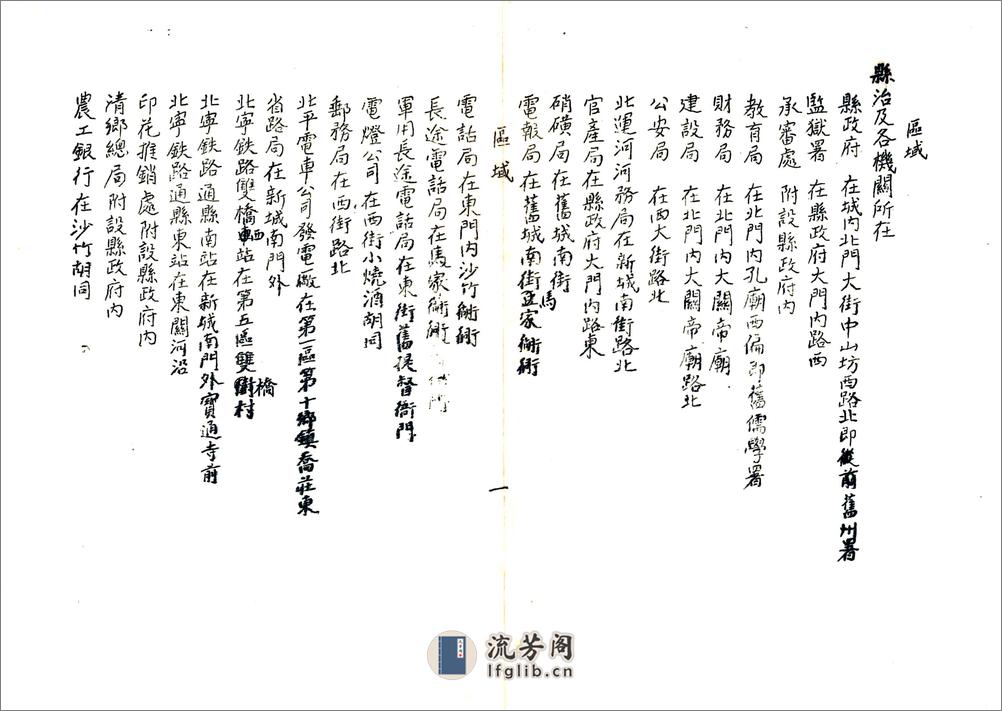 區域
縣治及各機關所在
縣政府 在城內北門大街中山坊西路北即從前舊州署
監獄署 在縣政府大門內路西
承審處 附設縣政府內
教育局 在北門內孔廟西偏即舊儒學署
財務局 在北門內大關帝廟
建設局 在北門內大關帝廟路北
公安局 在西大街路北
北運河河務局在新城南街路北
官產局在縣政府大門內路東
硝磺局在舊城南街
電報局 在舊城南街馬家衚衕
區域
一
電話局在東門內沙竹衚衕
長途電話局在馬家衚衕
軍用長途電話局在東街舊提督衙門
電燈公司 在西街小燒酒胡同
郵務局 在西街路北
北平電車公司發電廠在第一區第十鄉鎮喬莊東
省路局在新城南門外
北寧鉄路雙橋車站在第五區雙橋村
北寧鉄路通縣南站在新城南門外寶通寺前
北寧鉄路通縣東站在東關河沿
印花推銷處附設縣政府內
清鄉總局附設縣政府內
農工銀行在沙竹胡同
流芳阁
lfglib.cn